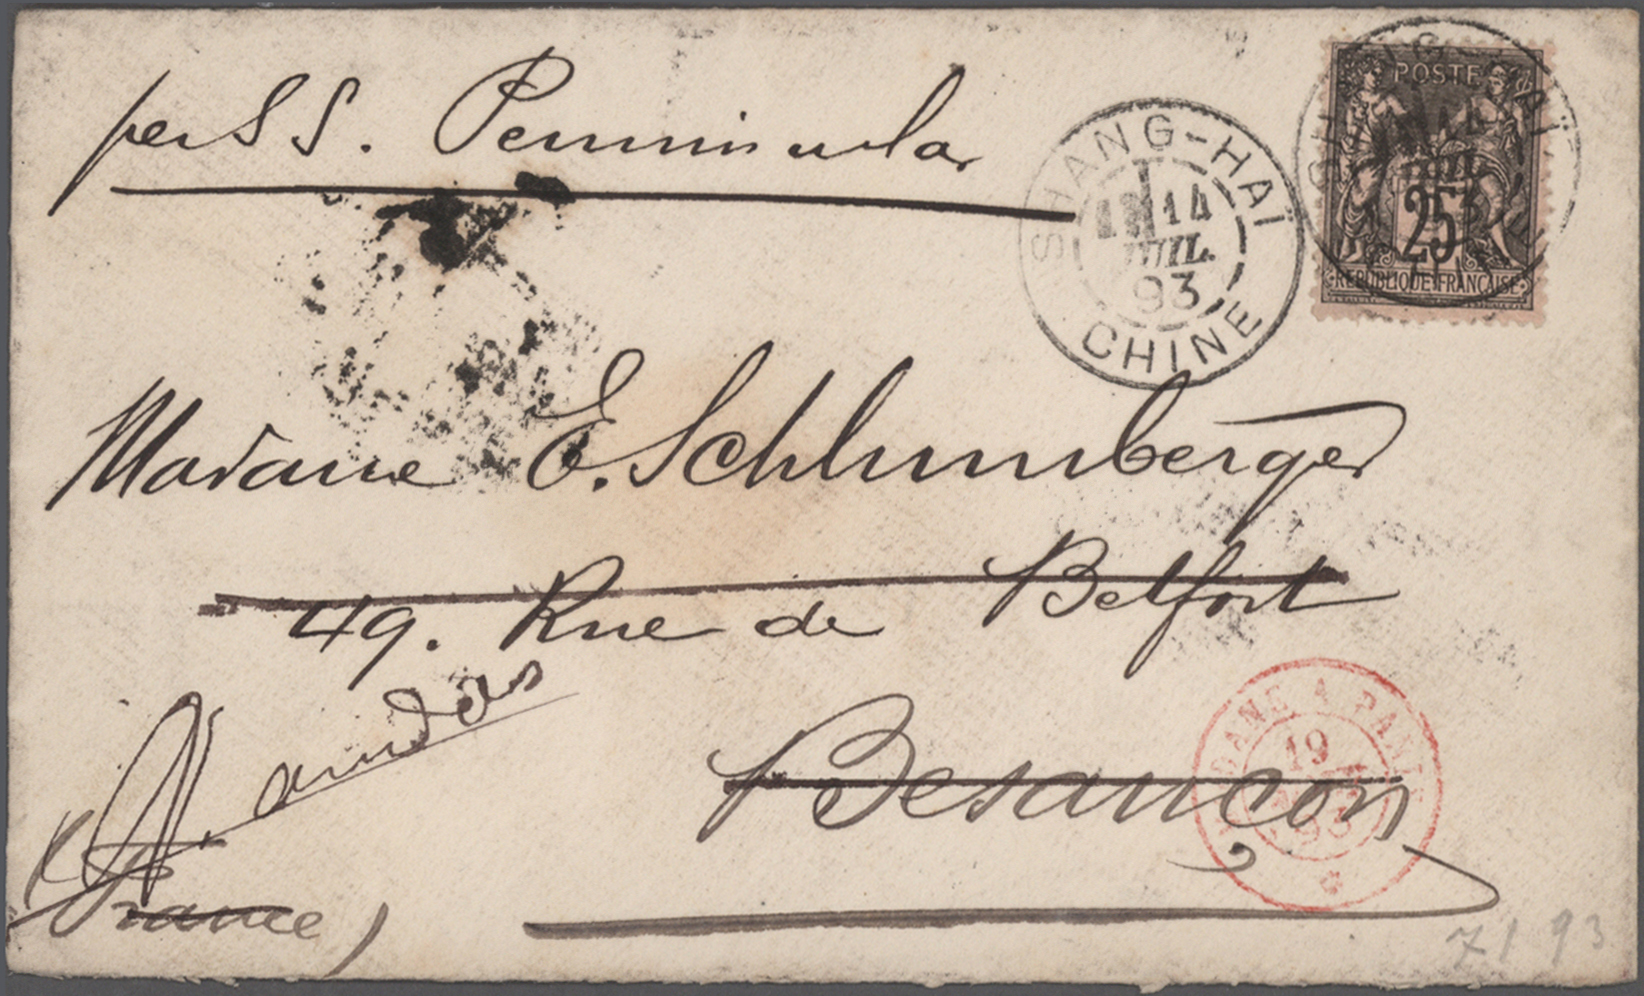 per SS. Peninsular
SHANG-HAÏ
14
JUIL.
93
CHINE
POSTE
25
REPUBLIQUE FRANÇAISE
Madame E. Schlumberger
49. Rue de Belfort
Besançon
(France)
19
93
7 1 93